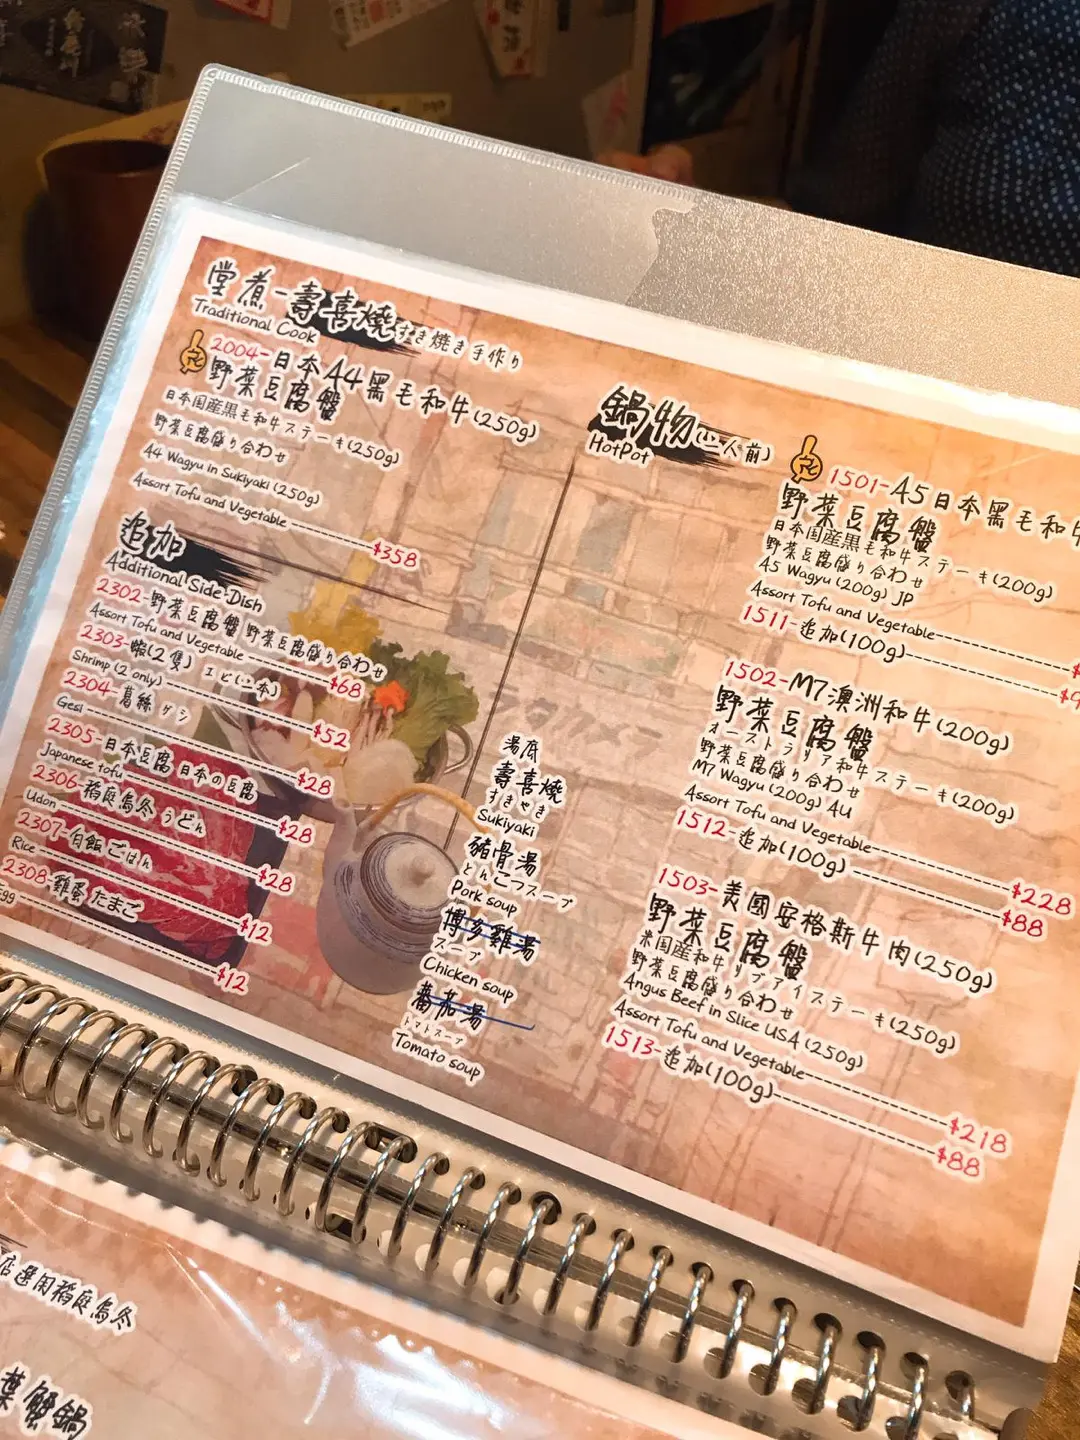 堂煮-壽喜燒すき焼き手作り
Traditional Cook
2004-日本A4黑毛和牛(250g)
野菜豆腐盤
日本国産黒毛和牛ステーキ(250g)
野菜豆腐盛り合わせ
A4 Wagyu in Sukiyaki (250g)
Assort Tofu and Vegetable $358
追加
Additional Side-Dish
2302-野菜豆腐盤 野菜豆腐盛り合わせ
Assort Tofu and Vegetable $68
2303-蝦(2隻) エビ(二本)
Shrimp (2 only) $52
2304-葛絲 グシ
Gesi $28
2305-日本豆腐 日本の豆腐
Japanese tofu $28
2306-稻庭烏冬 うどん
Udon $28
2307-白飯 ごはん
Rice $12
2308-雞蛋 たまご
Egg $12
湯底
壽喜燒
すきやき
Sukiyaki
豬骨湯
とんこつスープ
Pork soup
博多雞湯
スープ
Chicken soup
蕃茄湯
トマトスープ
Tomato soup
鍋物(二人前)
HotPot
1501-A5日本黑毛和牛
野菜豆腐盤
日本国産黒毛和牛ステーキ(200g)
野菜豆腐盛り合わせ
A5 Wagyu (200g) JP
Assort Tofu and Vegetable $
1511-追加(100g) $9
1502-M7澳洲和牛(200g)
野菜豆腐盤
オーストラリア和牛ステーキ(200g)
野菜豆腐盛り合わせ
M7 Wagyu (200g) AU
Assort Tofu and Vegetable $228
1512-追加(100g) $88
1503-美國安格斯牛肉(250g)
野菜豆腐盤
米国産和牛リブアイステーキ(250g)
野菜豆腐盛り合わせ
Angus Beef in Slice USA (250g)
Assort Tofu and Vegetable $218
1513-追加(100g) $88
店選用稻庭烏冬
葉蟹鍋